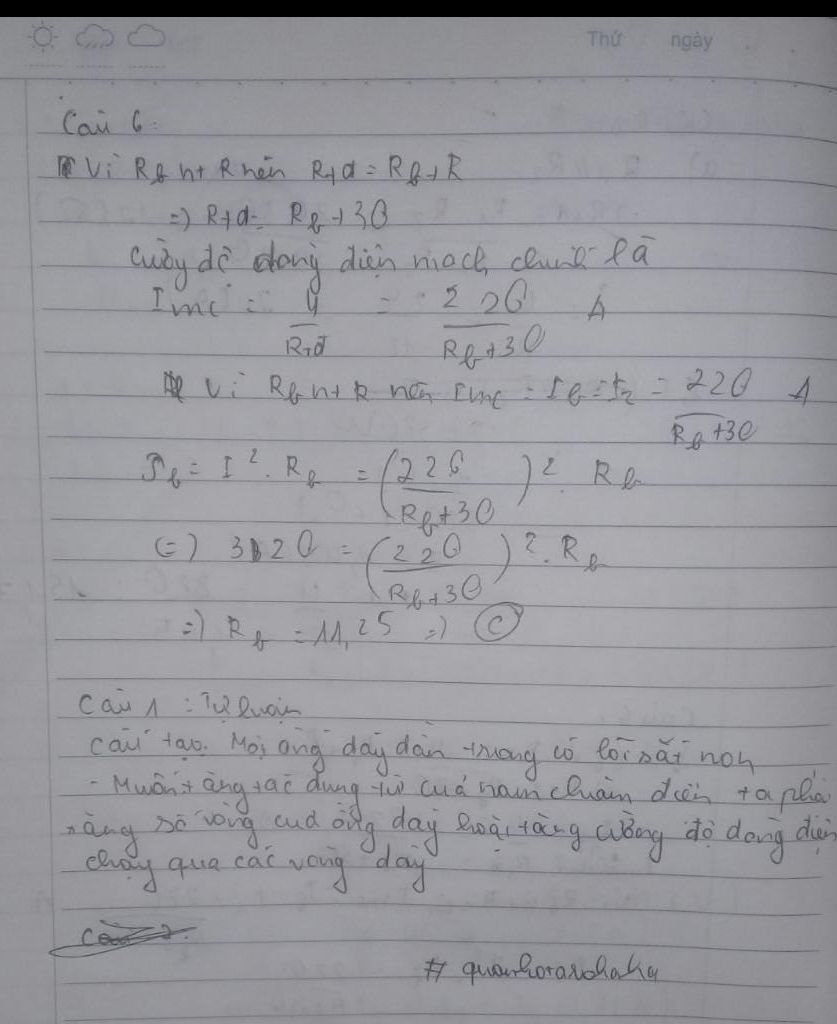 Thứ ngày
Câu 6:
Vì Rb nt R nên Rtđ = Rb + R
=) Rtđ = Rb + 30
cườg độ dòng điện mạch chính là
Imc = U/Rtđ = 220/(Rb+30) A
Vì Rb nt R nên Imc = Ib = I2 = 220/(Rb+30) A
Pb = I². Rb = (220/(Rb+30))². Rb
(=) 320 = (220/(Rb+30))². Rb
=) Rb = 11,25 =) C
Câu 1 : Tự luận
Cấu tạo. Một ống dây dẫn trong có lõi sắt non
- Muốn tăng tác dụng từ của nam châm điện ta phải
tăng số vòng của ống dây hoặc tăng cường độ dòng điện
chạy qua các vòng dây
# quanhorarohaha